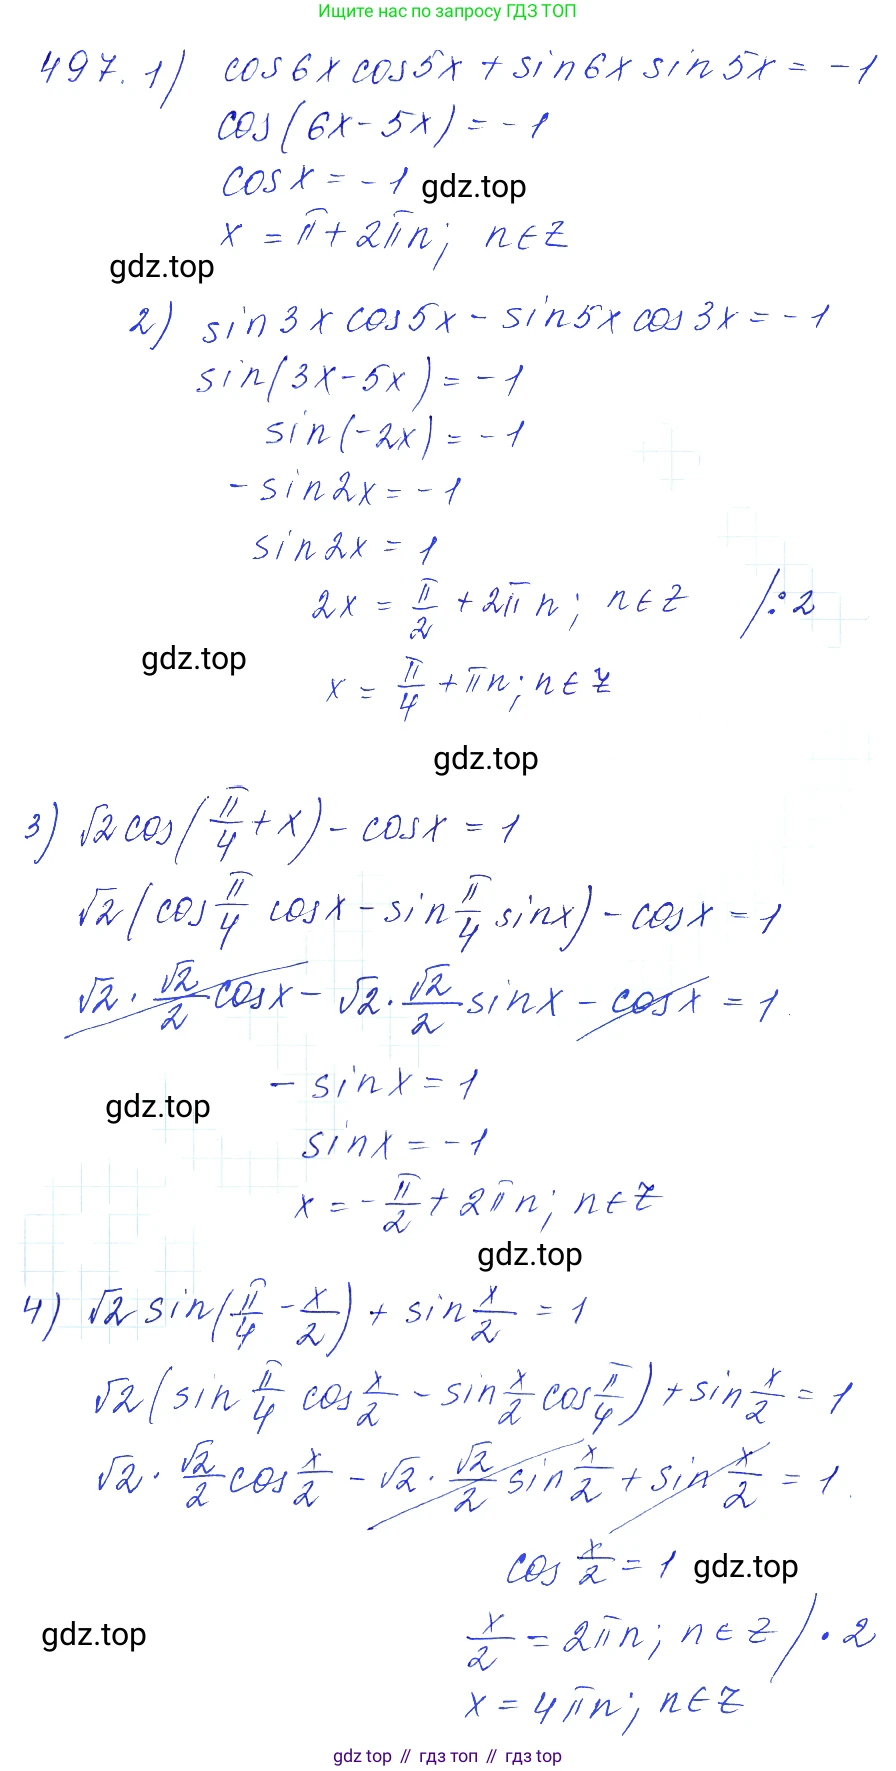 Ищите нас по запросу ГДЗ ТОП
497. 1) cos6x cos5x + sin6x sin5x = -1
cos(6x - 5x) = -1
cosx = -1 gdz.top
x = π + 2πn; n∈Z
gdz.top
2) sin3x cos5x - sin5x cos3x = -1
sin(3x - 5x) = -1
sin(-2x) = -1
-sin2x = -1
sin2x = 1
2x = π/2 + 2πn; n∈Z /:2
gdz.top x = π/4 + πn; n∈Z
gdz.top
3) √2 cos(π/4 + x) - cosx = 1
√2(cos π/4 cosx - sin π/4 sinx) - cosx = 1
√2 · √2/2 cosx - √2 · √2/2 sinx - cosx = 1
-sinx = 1
gdz.top
sinx = -1
x = -π/2 + 2πn; n∈Z
gdz.top
4) √2 sin(π/4 - x/2) + sin x/2 = 1
√2(sin π/4 cos x/2 - sin x/2 cos π/4) + sin x/2 = 1
√2 · √2/2 cos x/2 - √2 · √2/2 sin x/2 + sin x/2 = 1
cos x/2 = 1 gdz.top
gdz.top x/2 = 2πn; n∈Z / · 2
x = 4πn; n∈Z
gdz top // гдз топ // гдз top